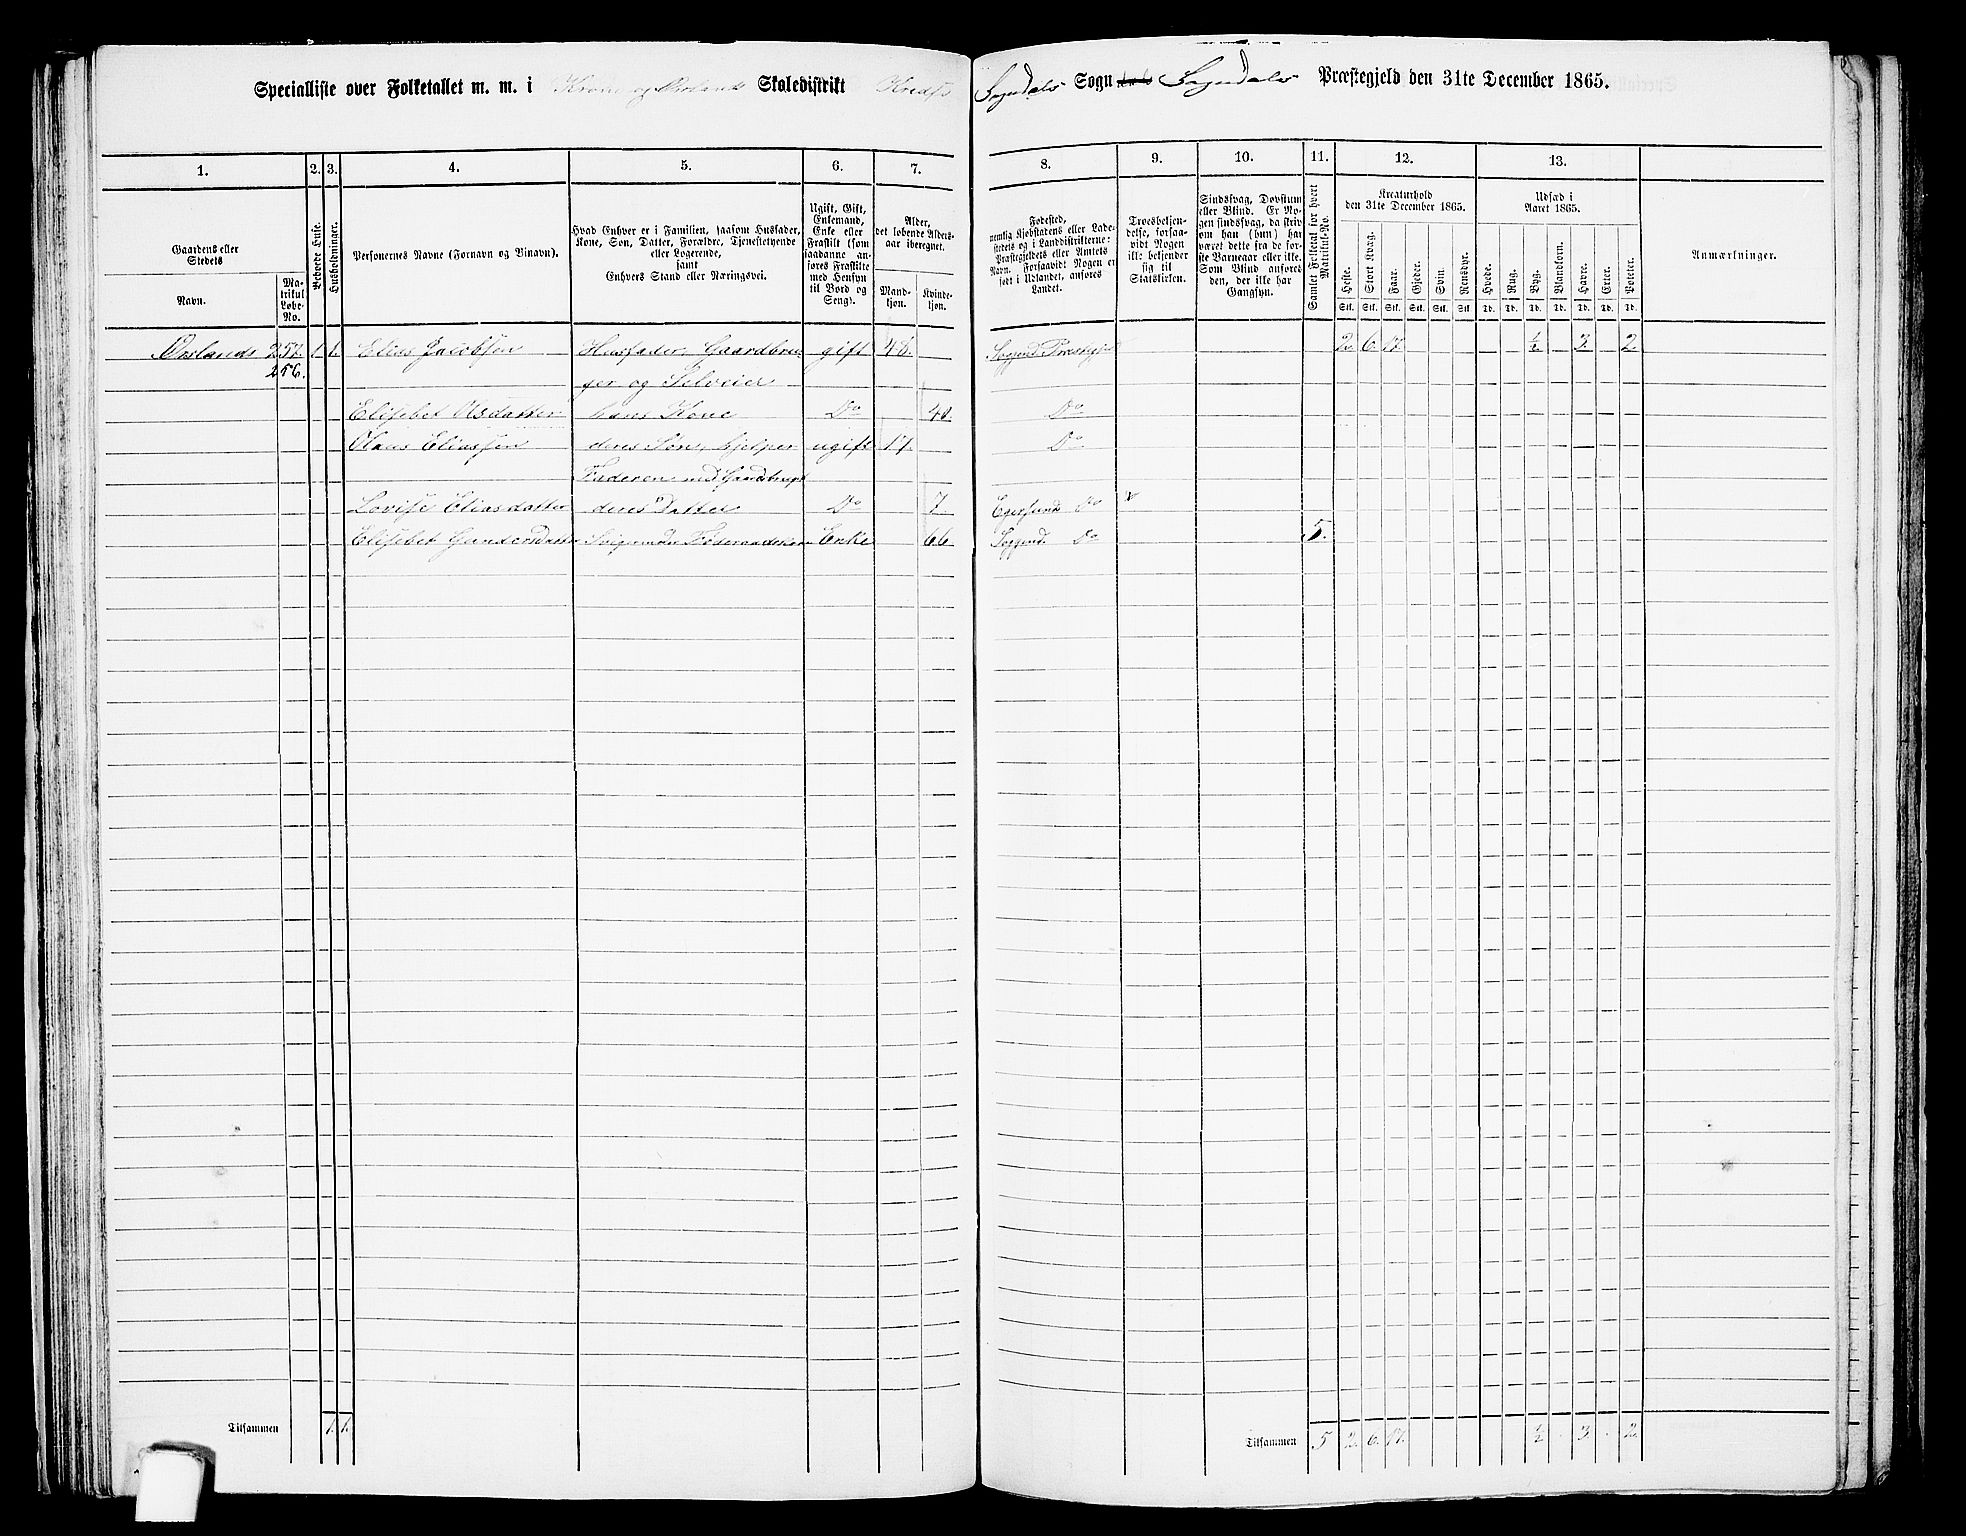 Specialliste over Folketallet m. m. i Skoledistrikt Kreds Sogndals Sogn Sogndals Præstegjeld den 31te December 1865.
1. 2. 3. 4. 5. 6. 7. 8. 9. 10. 11. 12. 13.
Gaardens eller Stedets
Navn.
Matrikul Løbe-No.
Beboede Huse.
Husholdninger.
Personernes Navne (Fornavn og Binavn).
Hvad Enhver er i Familien, saasom Husfader, Kone, Søn, Datter, Forældre, Tjenestetyende eller Logerende, samt Enhvers Stand eller Næringsvei.
Ugift, Gift, Enkemand, Enke eller Fraskilt (som saadanne anføres Fraskilte med Hensyn til Bord og Seng).
Alder, det løbende Aldersaar iberegnet.
Mandkjøn.
Kvindekjøn.
Fødested, nemlig Kjøbstadens eller Ladestedets og i Landdistrikterne: Præstegjeldets eller Amtets Navn. Forsaavidt Nogen er født i Udlandet, anføres Landet.
Troesbekjendelse, forsaavidt Nogen ikke bekjender sig til Statskirken.
Sindssvag, Døvstum eller Blind. Er Nogen sindssvag, da skrives om han (hun) har været dette fra de første Barneaar eller ikke. Som Blind anføres den, der ikke har Gangsyn.
Samlet Folketal for hvert Matrikul-No.
Kreaturhold den 31te December 1865.
Heste. Stort Kvæg. Faar. Gjeder. Svin. Rensdyr.
Stk. Stk. Stk. Stk. Stk. Stk.
Udsæd i Aaret 1865.
Hvede. Rug. Byg. Blandkorn. Havre. Erter. Poteter.
Td. Td. Td. Td. Td. Td. Td.
Anmærkninger.
Ørslands 257. 1 1. Elias Jacobsen Husfader, Gaardbru gift 48. Soggend. Præstegjel 2. 6. 17. ½. 3. 2.
256. ger og Selveier
Elisebet Olsdatter hans Kone Do 40. Do
Olaus Eliassen deres Søn, hjelper ugift 17. Do
Faderen med Gaardsbruget
Lovise Eliasdatter deres Datter Do 7. Egersund Do
Elisebet Gundersdatter Svigermoder Føderaadskone Enke 66. Soggend. Do 5.
Tilsammen 1. 1. Tilsammen 5 2. 6. 17. ½ 3. 2.